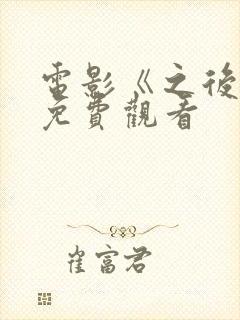 電影《之後
免費觀看
崔富君